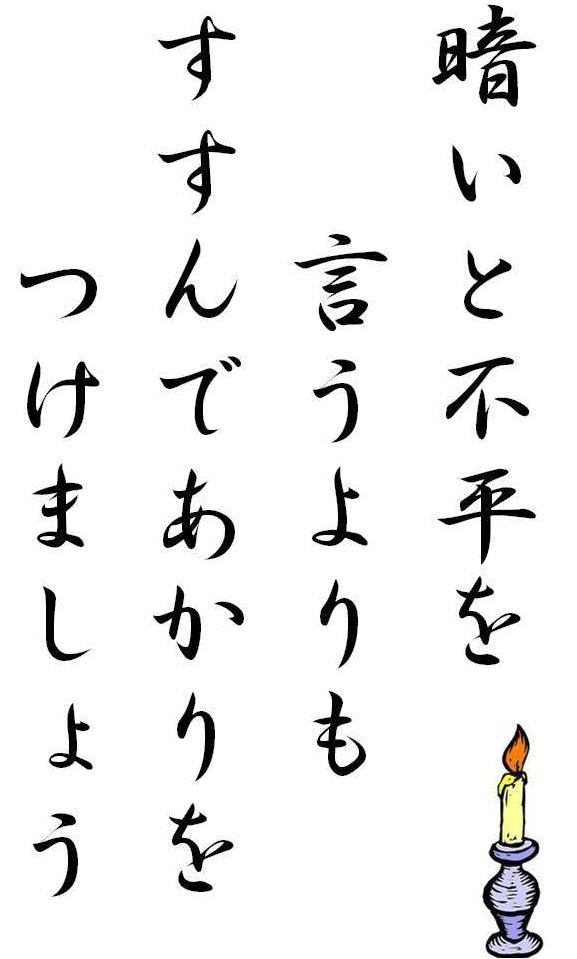 暗いと不平を
言うよりも
すすんであかりを
つけましょう